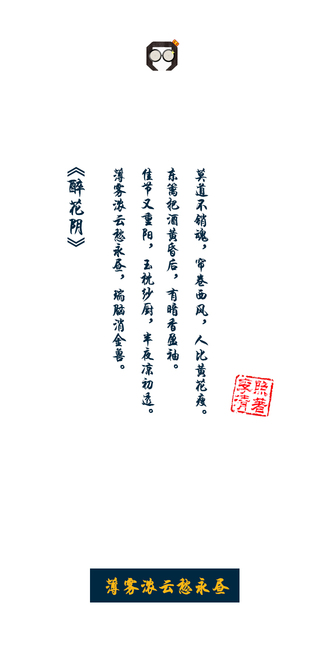 《醉花阴》
薄雾浓云愁永昼，瑞脑消金兽。
佳节又重阳，玉枕纱厨，半夜凉初透。
东篱把酒黄昏后，有暗香盈袖。
莫道不销魂，帘卷西风，人比黄花瘦。
清
照著
薄雾浓云愁永昼